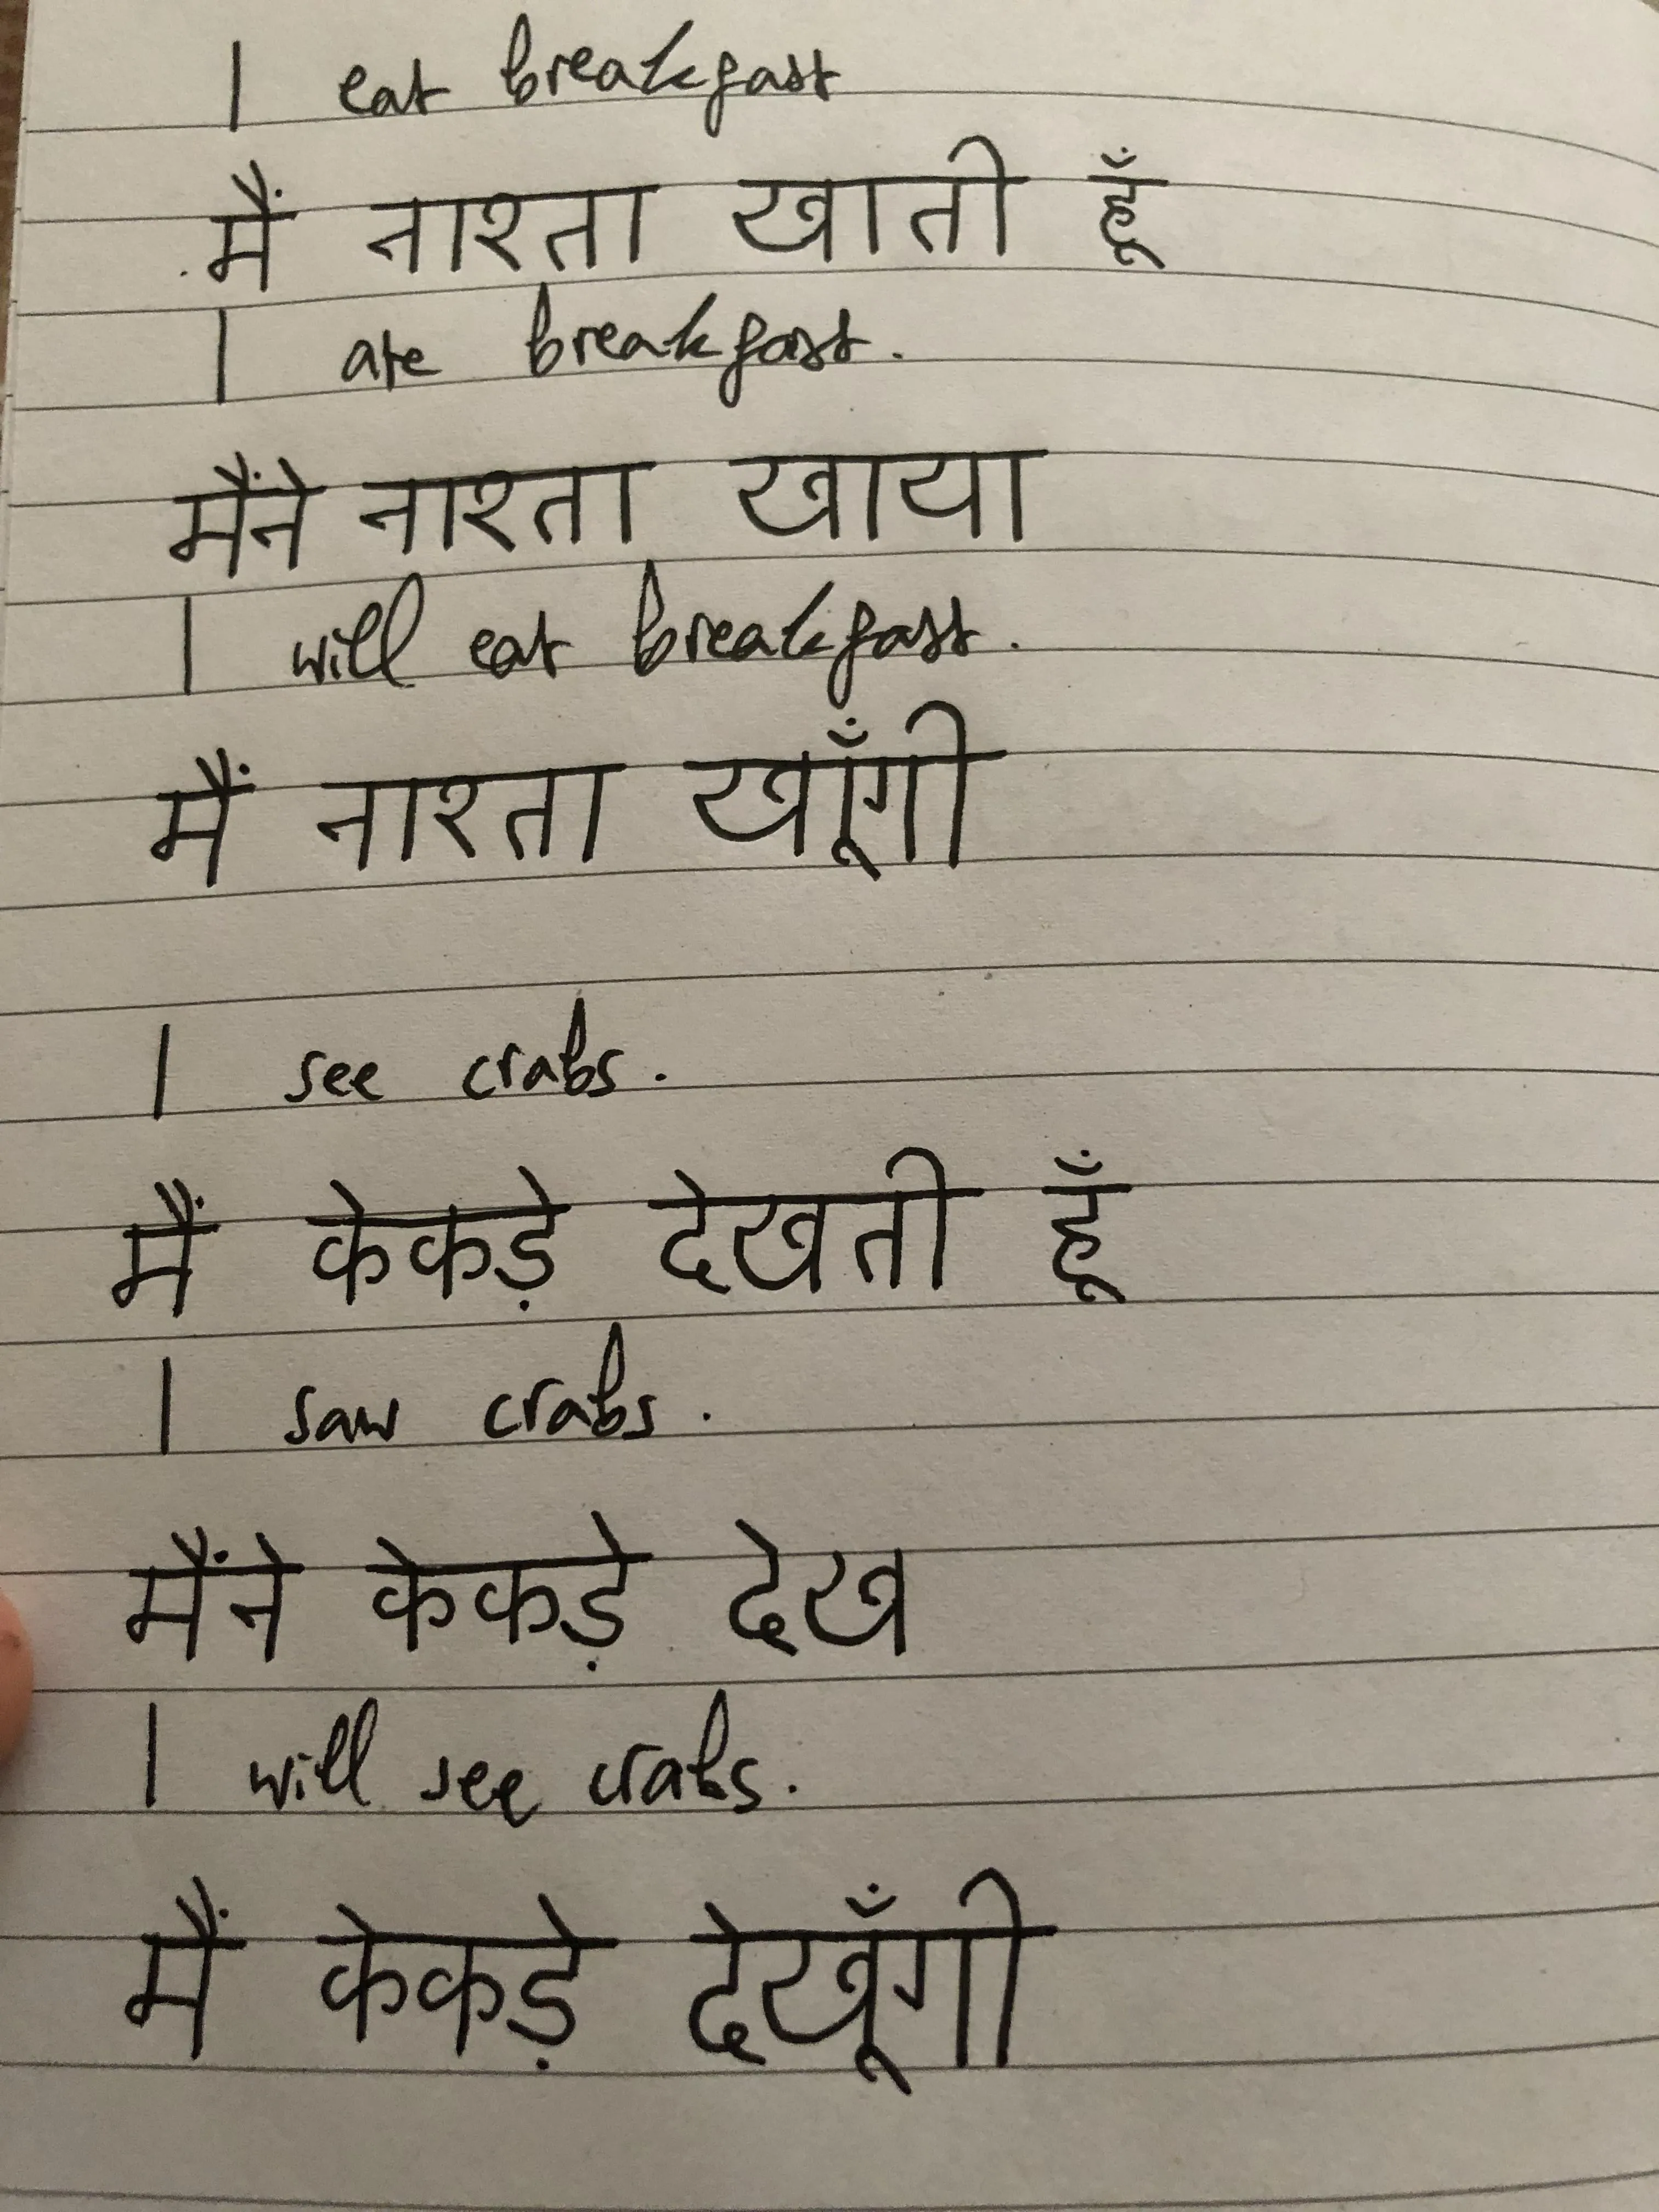 I eat breakfast
मैं नाश्ता खाती हूँ
I ate breakfast.
मैंने नाश्ता खाया
I will eat breakfast.
मैं नाश्ता खाूँगी
I see crabs.
मैं केकड़े देखती हूँ
I saw crabs.
मैंने केकड़े देख
I will see crabs.
मैं केकड़े देखूँगी